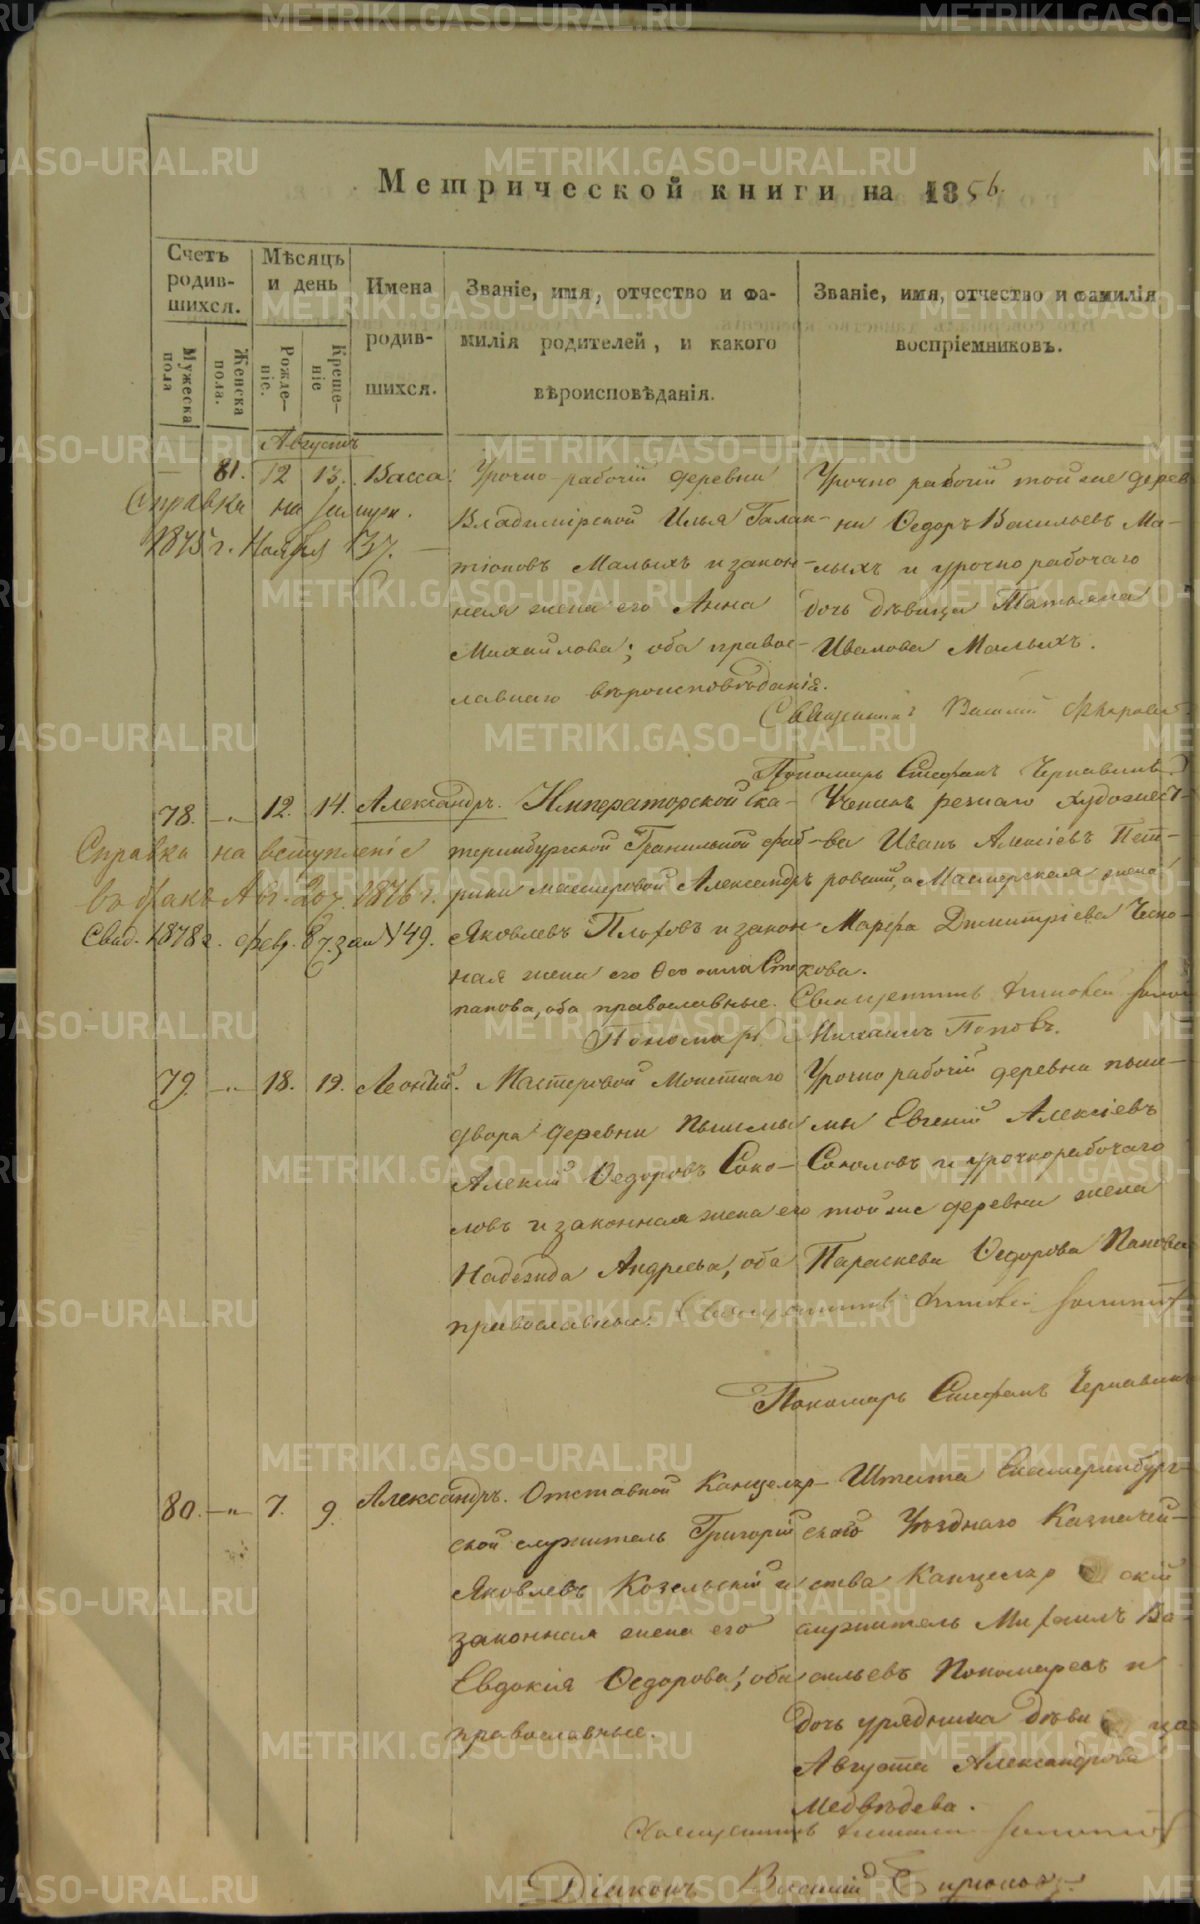 Метрической книги на 1856.
Счетъ родив-шихся.
Мужеска пола
Женска пола.
Мѣсяцъ и день
Рожде-ніе.
Креще-ніе
Имена родив-шихся.
Званіе, имя, отчество и фа-
милія родителей, и какого
вѣроисповѣданія.
Званіе, имя, отчество и фамилія
воспріемниковъ.
Августъ
— 81. 12 13. Васса.
Справка на
1875 г. Ноября 137.
Урочно-рабочій деревни
Владимірской Илья Галак-
тіоновъ Малыхъ и закон-
ная жена его Анна
Михайлова; оба правос-
лавнаго вѣроисповѣданія.
Урочно рабочій той же дерев
ни Ѳедоръ Васильевъ Ма-
лыхъ и урочно рабочаго
дочь дѣвица Татьяна
Иванова Малыхъ.
Священникъ Василій
Пономарь Стефанъ Чернавинъ
78. —"— 12. 14. Александръ.
Справка на вступленіе
въ бракъ Авг. 20 1876 г.
Свид. 1878 г. февр. 87. за N 149.
Императорской Ека-
теринбургской Гранильной фаб-
рики мастеровой Александръ
Яковлевъ и закон
ная жена его Сте
панова, оба православные.
Ученикъ резнаго художест-
ва Иванъ Алексіевъ Пет-
ровскій, и Мастерская жена
Марфа Димитріева Чесно-
кова.
Священникъ
Пономарь Михаилъ Поповъ.
79. —"— 18. 19. Леонтій.
Мастеровой Монетнаго
двора деревни Пышмы
Алексій Ѳедоровъ Соко-
ловъ и законная жена его
Надежда Андреева, оба
православные.
Урочно рабочій деревни пыш-
мы Евгеній Алексіевъ
Соколовъ и урочнорабочаго
той же деревни жена
Параскева Ѳедорова Панова
Священникъ
Пономарь Стефанъ Чернавинъ
80. —"— 7. 9. Александръ.
Отставной Канцеляр-
ской служитель Григорій
Яковлевъ Козельскій и
законная жена его
Евдокія Ѳедорова, оба
православные.
Штата Екатеринбург-
скаго Уѣзднаго Казначей-
ства Канцелярскій
служитель Михаилъ Ва
сильевъ Пономаревъ и
дочь урядника дѣвица
Августа Александрова
Медвѣдева.
Священникъ
Діаконъ Василій Бирюковъ
METRIKI.GASO-URAL.RU